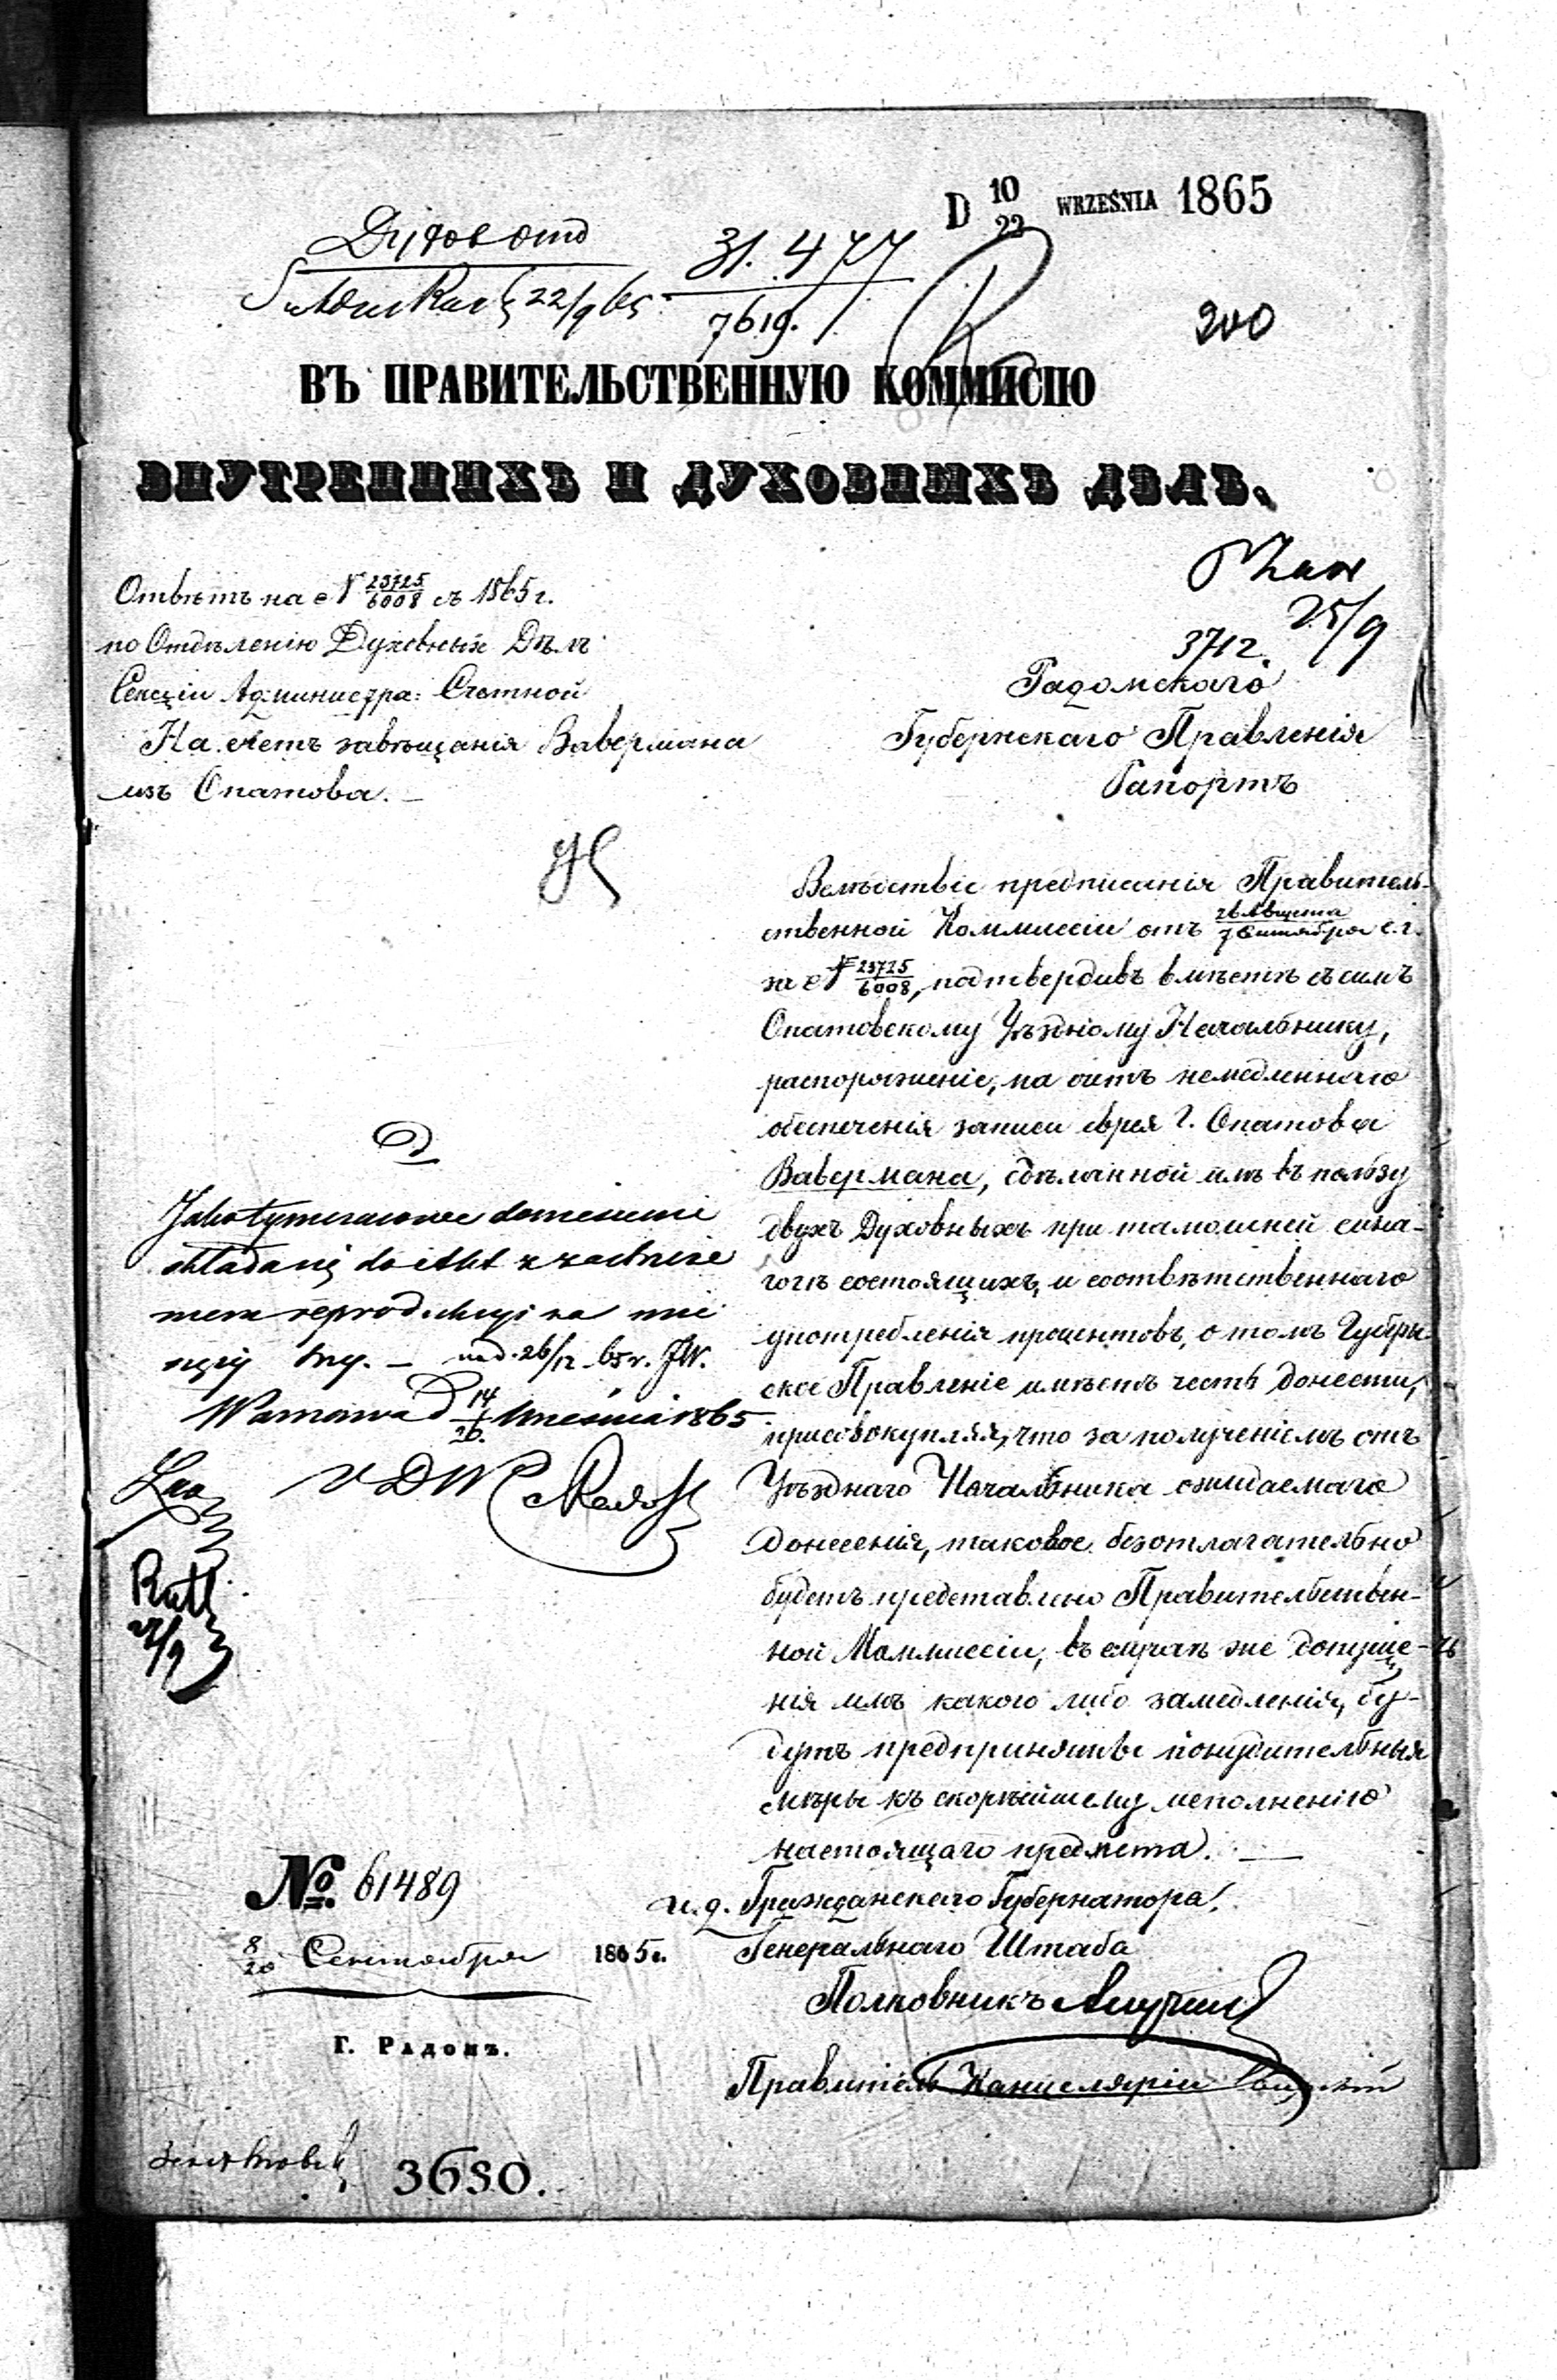 D 10/22 WRZEŚNIA 1865
31.477
7619.
22/9 65
200
ВЪ ПРАВИТЕЛЬСТВЕННУЮ КОММИСІЮ
ВНУТРЕННИХЪ И ДУХОВНЫХЪ ДѢЛЪ.
Отвѣтъ на № 23725/6008 съ 1865 г.
по Отдѣленію Духовныхъ Дѣлъ
Секціи Администра: Счетной
На счетъ завѣщанія Вавермана
изъ Опатова.
25/9
3712.
Радомскаго
Губернскаго Правленія
Рапортъ
Вслѣдствіе предписанія Правитель-
ственной Коммиссіи отъ 26 Августа/7 Сентября с.г.
за № 23725/6008, подтвердивъ вмѣстѣ съ симъ
Опатовскому Уѣздному Начальнику,
распоряженіе, на счетъ немедленнаго
обеспеченія записи еврея г. Опатова
Вавермана, сдѣланной имъ въ пользу
двухъ Духовныхъ при тамошней сина-
гогѣ состоящихъ, и соотвѣтственнаго
употребленія процентовъ, о томъ Губерн-
ское Правленіе имѣетъ честь донести,
присовокупляя, что за полученіемъ отъ
Уѣзднаго Начальника ожидаемаго
донесенія, таковое безотлагательно
будетъ представлено Правительствен-
ной Коммиссіи, въ случаѣ же допуще-
нія имъ какого либо замедленія, бу-
дутъ предприняты понудительныя
мѣры къ скорѣйшему исполненію
настоящаго предмета.
и.д. Гражданскаго Губернатора,
Генеральнаго Штаба
Полковникъ Анучинъ
Правитель Канцеляріи
Jako tymczasowe doniesienie
składa się do akt z zastrzeże
niem reprodukcyi za mie
sięcy trzy. – nad. 26/12 65 r. JW.
Warszawa D 14/26 Września 1865
V D W
27/9
№ 61489
8/20 Сентября 1865 г.
Г. Радомъ.
3630.